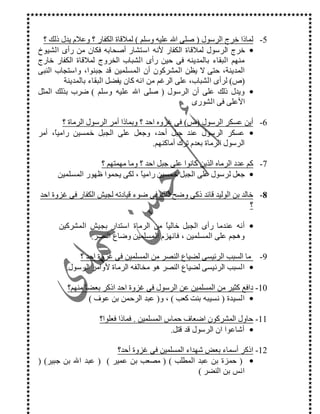 5- لماذا خرج الرسول ( صلى الله عليه وسلم ) لملاقاة الكفار ؟ وعلام يدل ذلك ؟
• خرج الرسول لملاقاة الكفار لأنه استشار أصحابه فكان من رأى الشيوخ
منهم البقاء بالمدينه فى حين رأى الشباب الخروج لملاقاة الكفار خارج
المدينة، حتى لا يظن المشركون أن المسلمين قد جبنوا، واستجاب النبى
(ص) لرأى الشباب، على الرغم من انه كان يفضل البقاء بالمدينة
• ويدل ذلك على أن الرسول ( صلى الله عليه وسلم ) ضرب بذلك المثل
الأعلى فى الشورى
6- أين عسكر الرسول (ص) فى غزوه احد ؟ وبماذا أمر الرسول الرماة ؟
• عسكر الرسول عند جبل أحد، وجعل على الجبل خمسين راميا، أمر
الرسول الرماة بعدم ترك أماكنهم.
7- كم عدد الرماه الذين كانوا على جبل احد ؟ وما مهمتهم ؟
• جعل لرسول على الجبل خمسين راميا ، لكى يحموا ظهور المسلمين
8- خالد بن الوليد قائد ذكى وضح ذلك فى ضوء قيادته لجيش الكفار فى غزوة احد
؟
• أنه عندما رأى الجبل خالياً من الرماة استدار بجيش المشركين
وهجم على المسلمين ، فانهزم المسلمين وضاع النصر.
9- ما السبب الرئيسى لضياع النصر من المسلمين فى غزوة احد ؟
• السبب الرئيسى لضياع النصر هو مخالفه الرماة لأوامر الرسول
10- دافع كثير من المسلمين عن الرسول فى غزوة احد اذكر بعضا منهم؟
• السيدة ( نسيبه بنت كعب ) ، و( عبد الرحمن بن عوف )
11- حاول المشركون اضعاف حماس المسلمين . فماذا فعلوا؟
• أشاعوا ان الرسول قد قتل.
12- اذكر أسماء بعض شهداء المسلمين فى غزوة أحد؟
• ( حمزة بن عبد المطلب ) ( مصعب بن عمير ) ( عبد الله بن جبير) (
انس بن النضر )